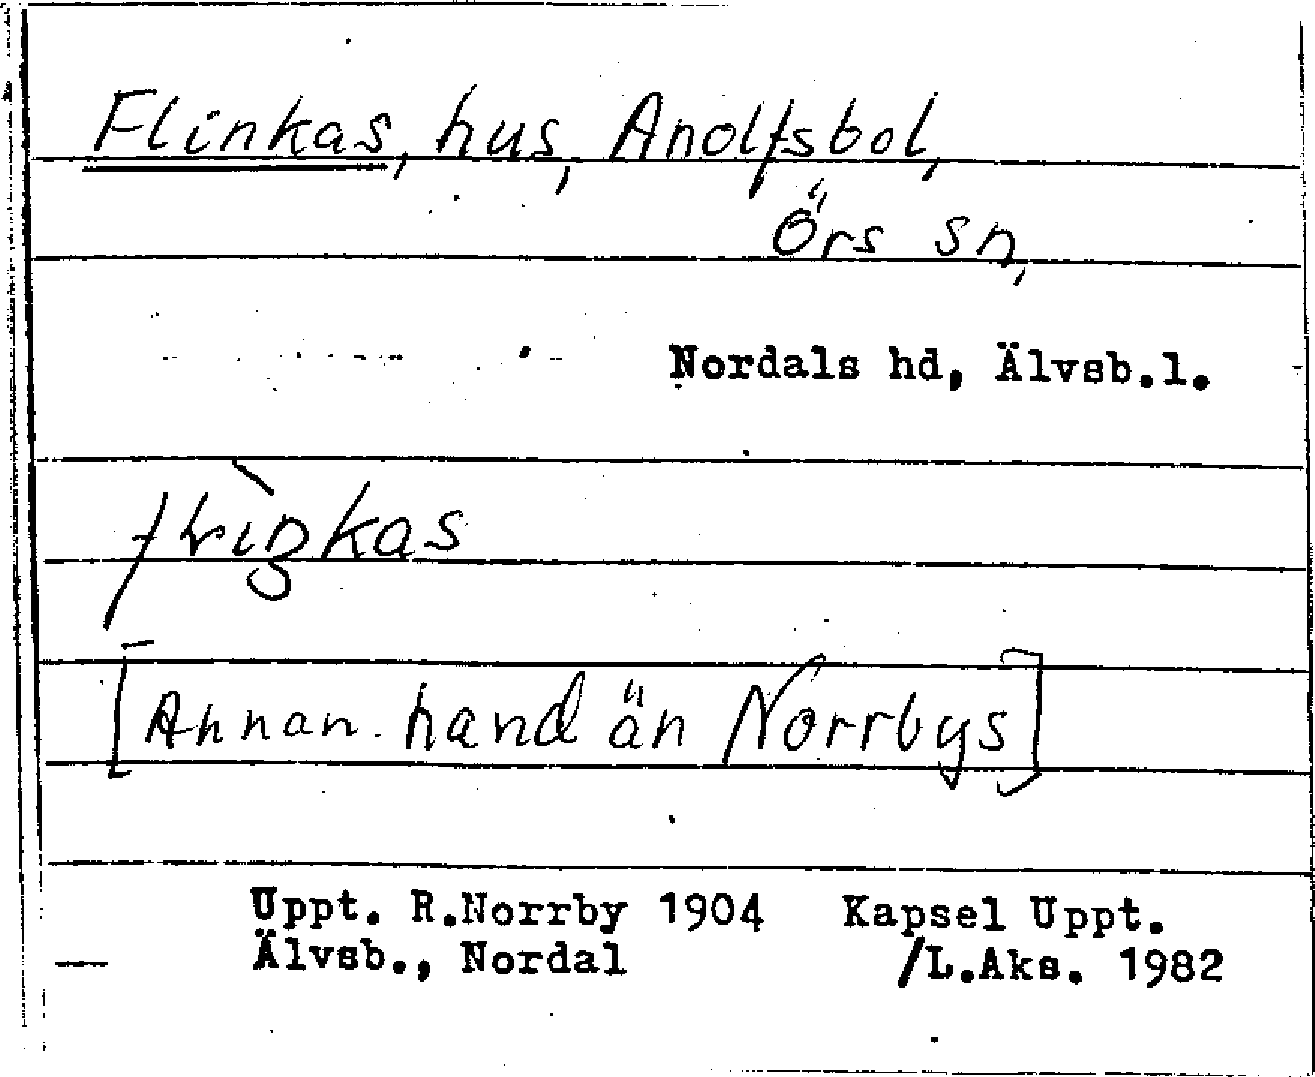 Flinkas, hus, Anolfsbol,
Örs sn,
Nordals hd, Älvsb.l.
[Annan hand än Norrbys]
Uppt. R.Norrby 1904 Kapsel Uppt.
Älvsb., Nordal /L.Aks. 1982